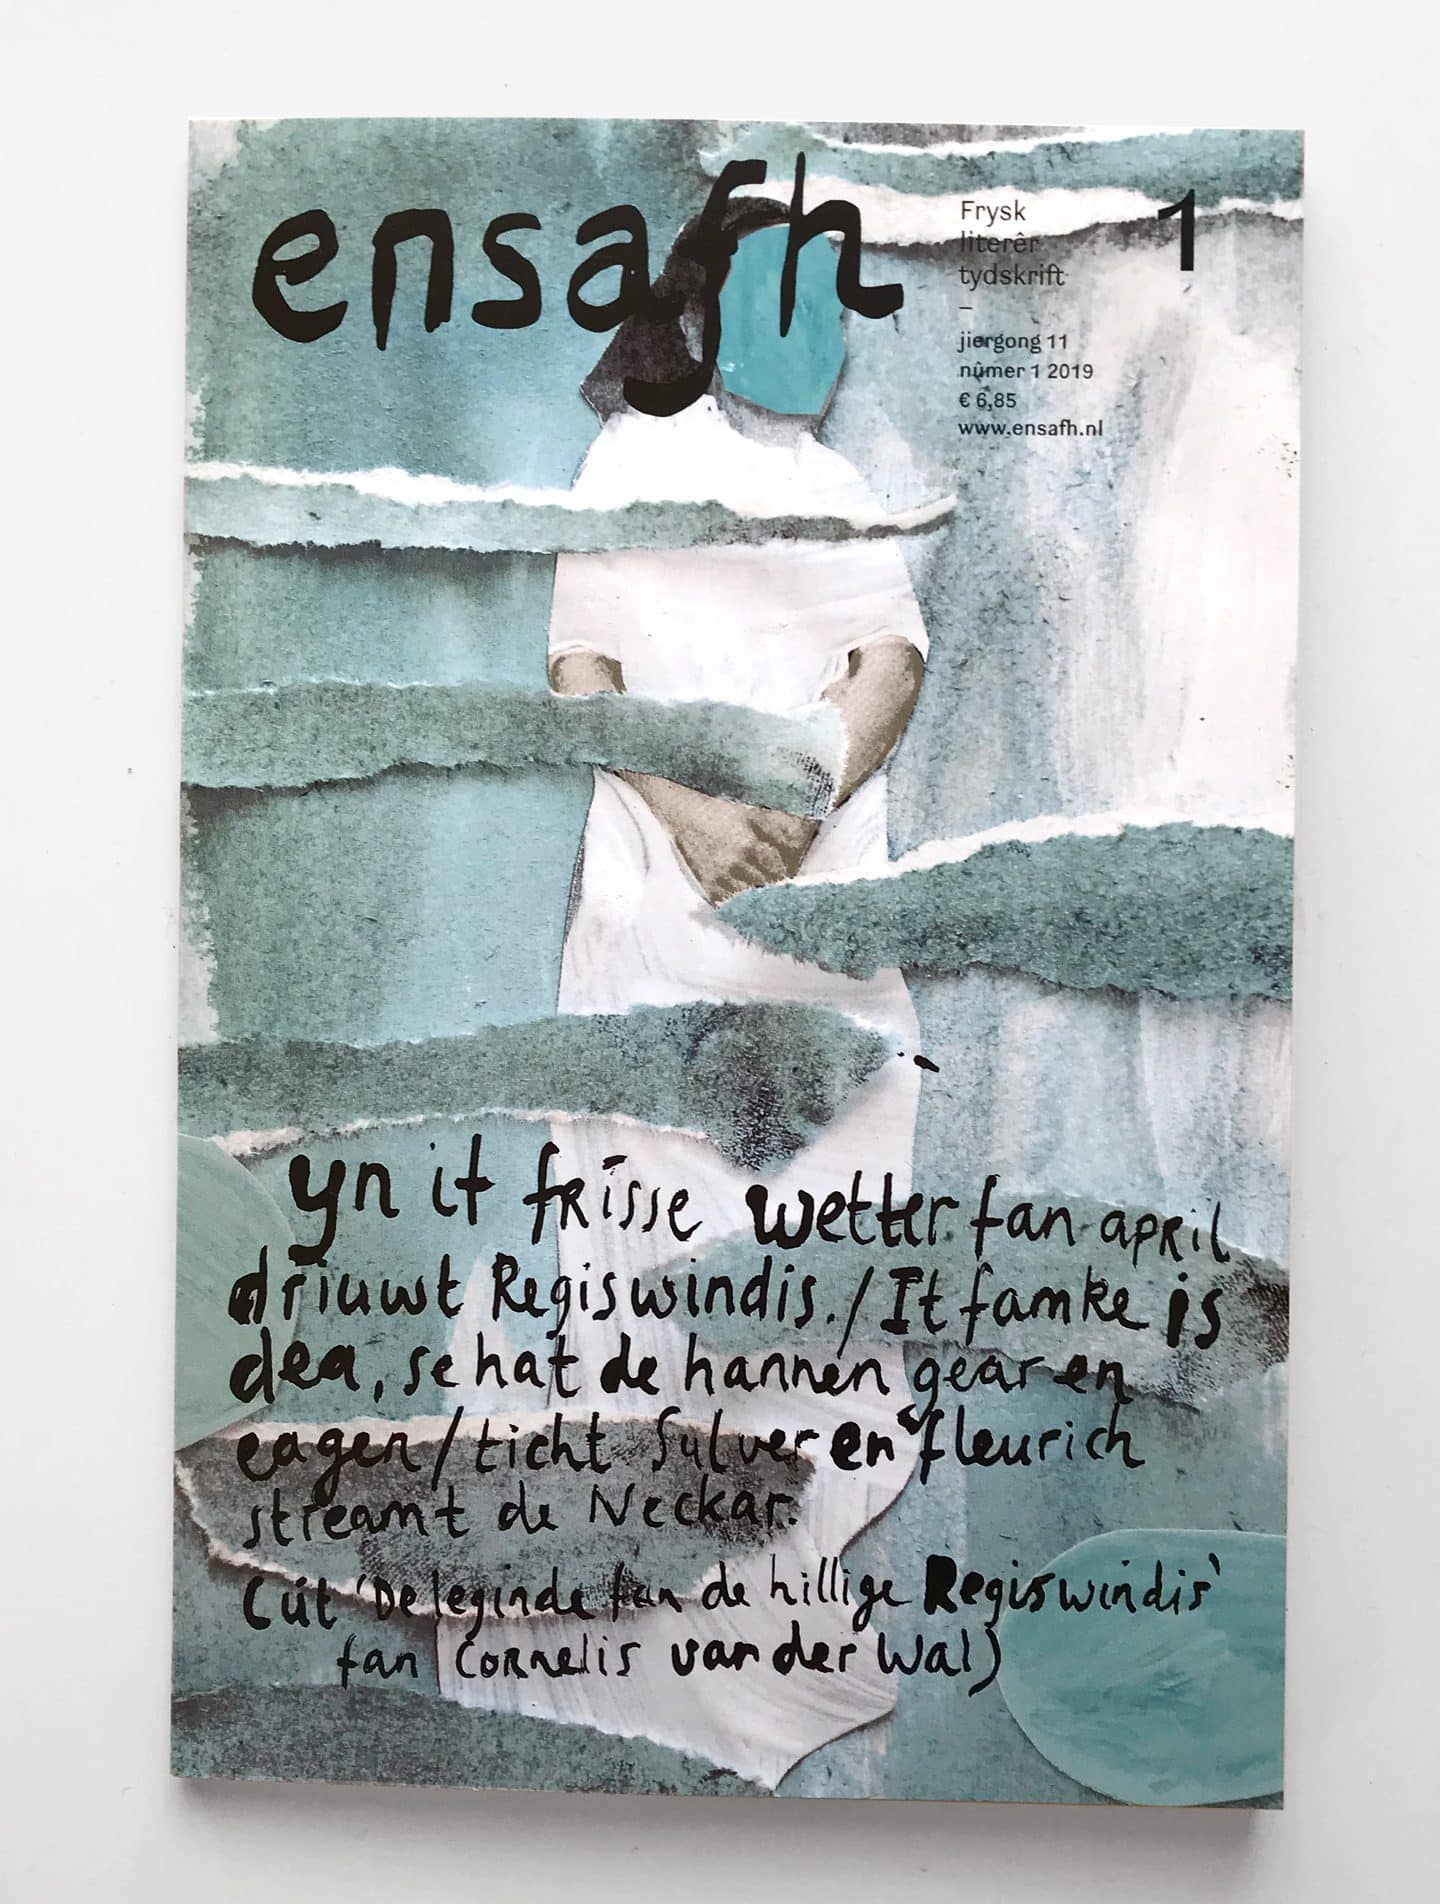 ensafh
Frysk
literêr
tydskrift
–
jiergong 11
nûmer 1 2019
€ 6,85
www.ensafh.nl
1
yn it frisse wetter fan april
driuwt Regiswindis./It famke is
dea, se hat de hannen gear en
eagen/ticht Sulver en fleurich
streamt de Neckar.
(út 'De leginde fan de hillige Regiswindis'
fan Cornelis van der Wal)